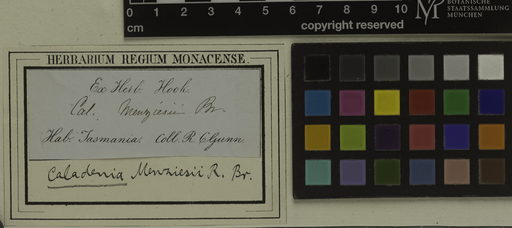 0 1 2 3 4 5 6 7 8 9 10
cm copyright reserved
BOTANISCHE
STAATSSAMMLUNG
MÜNCHEN
HERBARIUM REGIUM MONACENSE.
Ex Herb. Hook.
Cal. Menziesii Br.
Hab. Tasmania. Coll. R. C. Gunn.
Caladenia Menziesii R. Br.